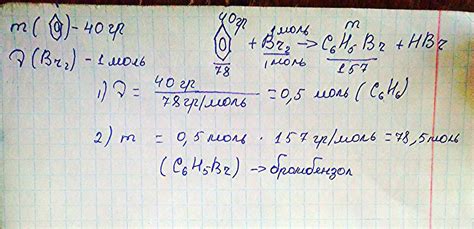 m (⌬) - 40 гр
ν (Br₂) - 1 моль
40 гр 1 моль m
⌬ + Br₂ → C₆H₅Br + HBr
78 1 моль 157
1) ν = 40 гр / 78 гр/моль = 0,5 моль (C₆H₆)
2) m = 0,5 моль · 157 гр/моль = 78,5 моль
(C₆H₅Br) → бромбензол